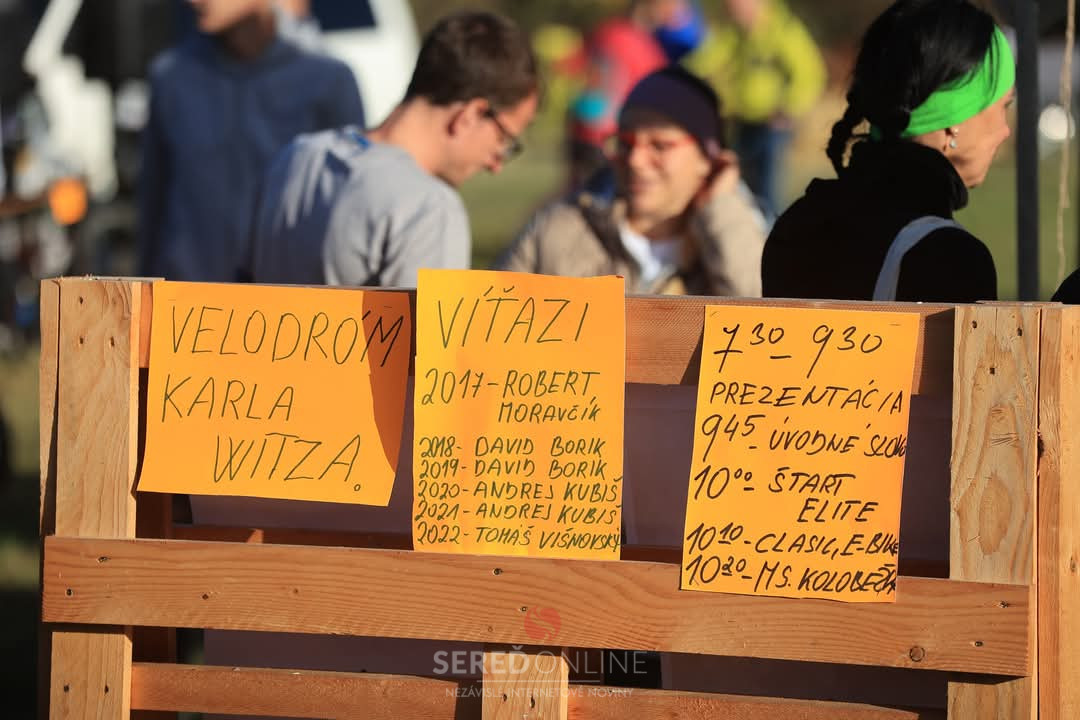 VELODRÓM
KARLA
WITZA.
VÍŤAZI
2017-ROBERT
MORAVČÍK
2018- DAVID BORIK
2019- DAVID BORIK
2020-ANDREJ KUBIŠ
2021-ANDREJ KUBIŠ
2022-TOMÁŠ VIŠŇOVSKÝ
7³⁰- 9³⁰
PREZENTÁCIA
9⁴⁵ ÚVODNÉ SLOVO
10⁰⁰ ŠTART
ELITE
10¹⁰-CLASIC, E-BIKE
10²⁰-MS. KOLOBEŽK
SEREĎONLINE
NEZÁVISLÉ INTERNETOVÉ NOVINY